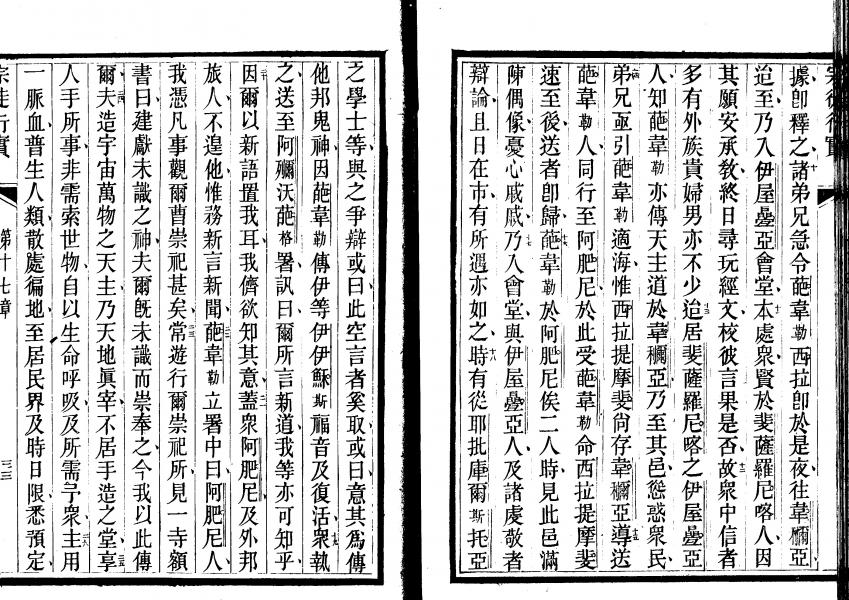 宗徒行實
據卽釋之諸弟兄急令葩韋勒西拉卽於是夜往韋欐亞
迨至乃入伊屋疊亞會堂本處衆賢於斐薩羅尼喀人因
其願安承敎終日尋玩經文校彼言果是否故衆中信者
多有外族貴婦男亦不少迨居斐薩羅尼喀之伊屋疊亞
人知葩韋勒亦傳天主道於韋欐亞乃至其邑慫惑衆民
弟兄亟引葩韋勒適海惟西拉提摩斐尙存韋欐亞導送
葩韋勒人同行至阿肥尼於此受葩韋勒命西拉提摩斐
速至後送者卽歸葩韋勒於阿肥尼俟二人時見此邑滿
陳偶像憂心戚戚乃入會堂與伊屋疊亞人及諸虔敬者
辯論且日在市有所遇亦如之時有從耶批庫爾斯托亞
之學士等與之爭辯或曰此空言者奚取或曰意其爲傳
他邦鬼神因葩韋勒傳伊等伊伊穌斯福音及復活衆執
之送至阿欐沃葩格署訊曰爾所言新道我等亦可知乎
因爾以新語置我耳我儕欲知其意蓋衆阿肥尼及外邦
旅人不遑他惟務新言新聞葩韋勒立署中曰阿肥尼人
我憑凡事觀爾曹崇祀甚矣常遊行爾崇祀所見一寺額
書曰建獻未識之神夫爾旣未識而崇奉之今我以此傳
爾夫造宇宙萬物之天主乃天地眞宰不居手造之堂享
人手所事非需索世物自以生命呼吸及所需予衆主用
一脈血普生人類散處徧地至居民界及時日限悉預定
宗徒行實
第十七章